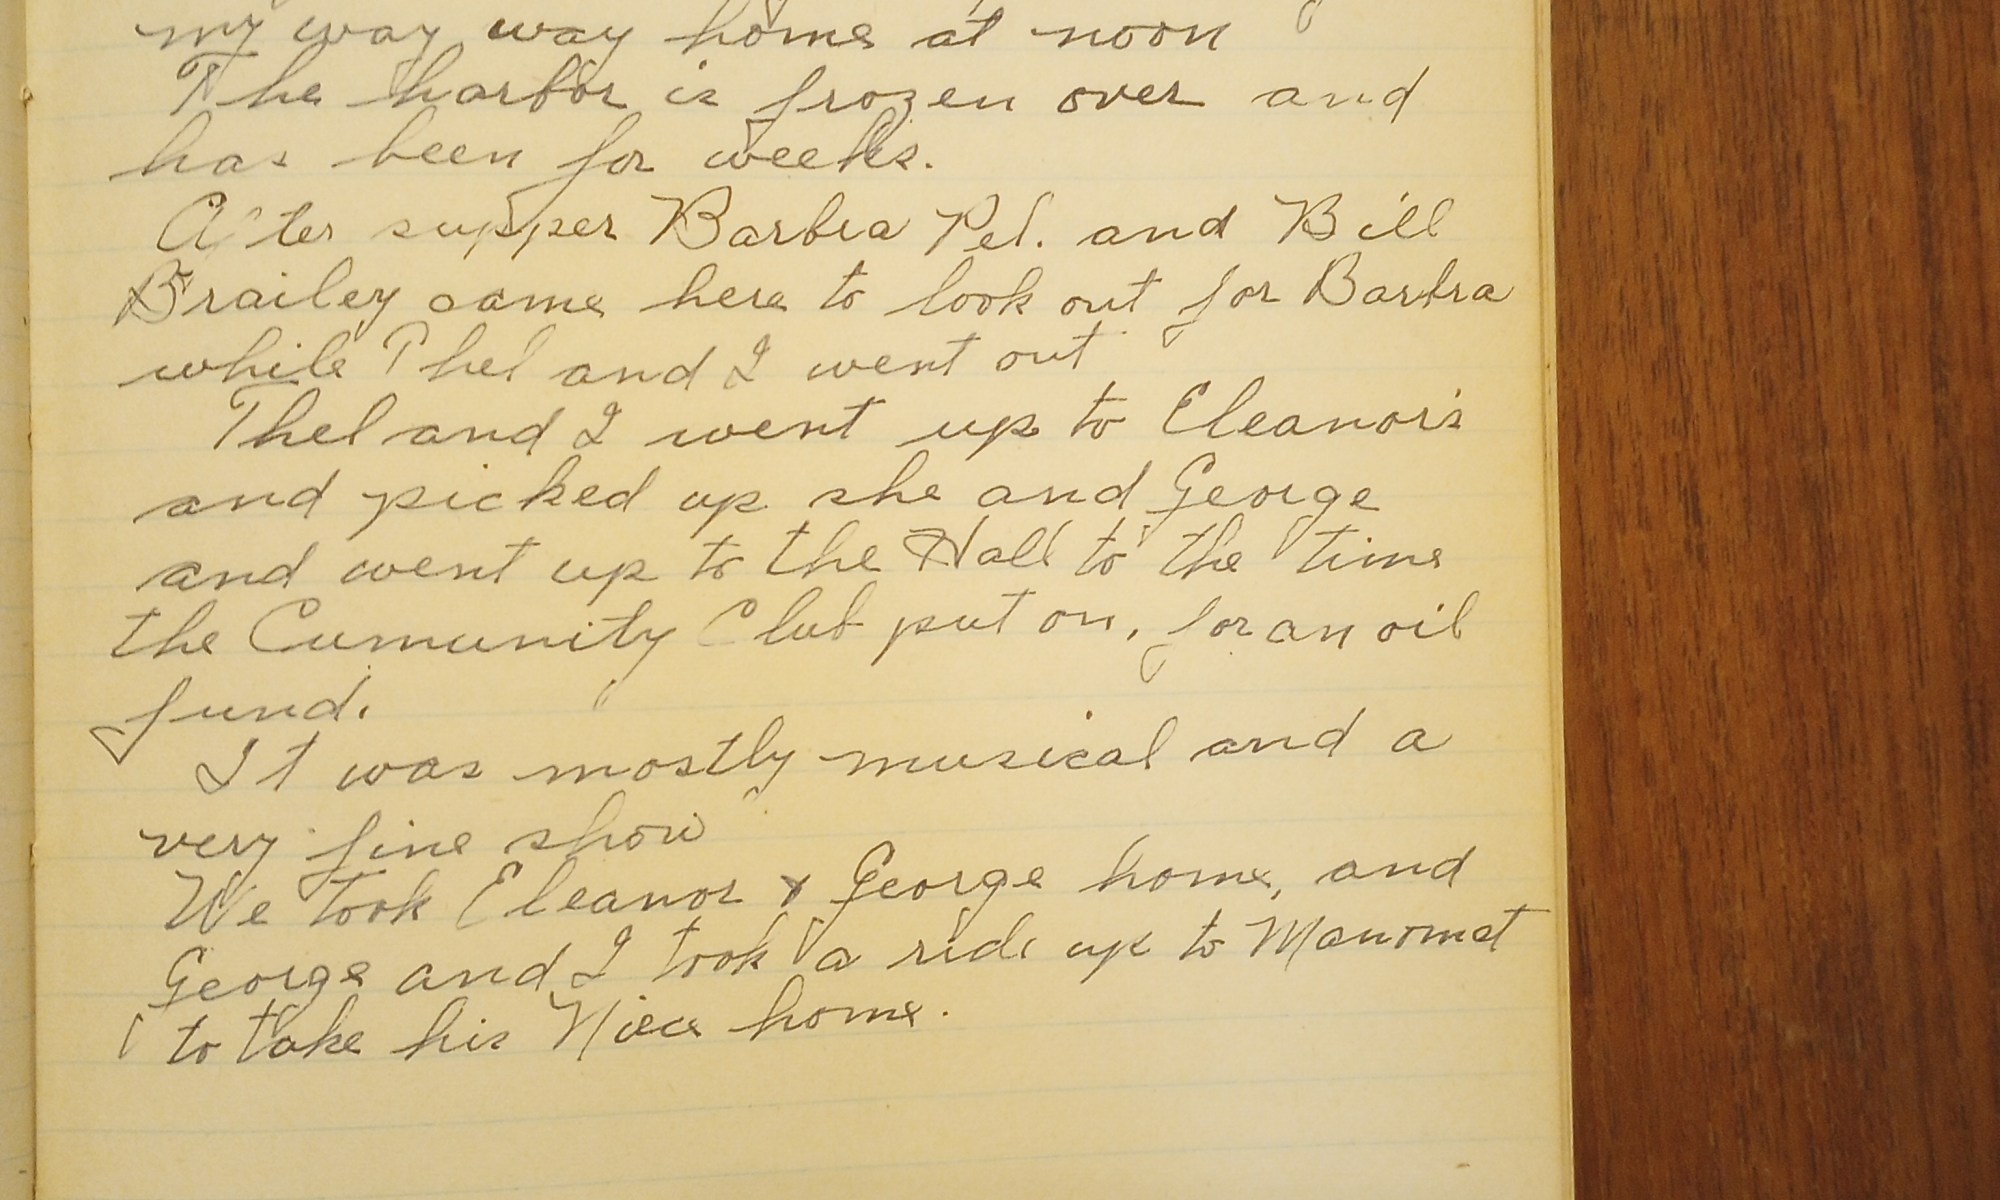 my way way home at noon
The harbor is frozen over and
has been for weeks.
After supper Barbra Pel. and Bill
Brailey came here to look out for Barbra
while Thel and I went out
Thel and I went up to Eleanor's
and picked up she and George
and went up to the Hall to the time
the Cumunity Club put on, for an oil
fund.
It was mostly musical and a
very fine show
We took Eleanor & George home, and
George and I took a ride up to Manomet
to take his Niece home.